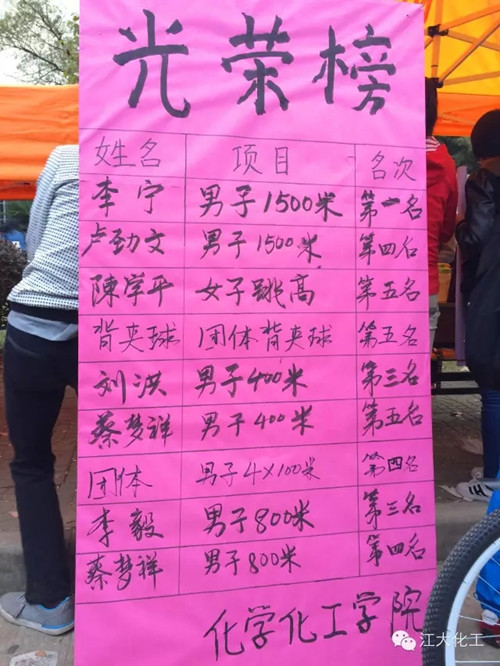 光荣榜
姓名 项目 名次
李宁 男子1500米 第一名
卢劲文 男子1500米 第四名
陳学平 女子跳高 第五名
背夹球 团体背夹球 第五名
刘洪 男子400米 第三名
蔡梦祥 男子400米 第五名
团体 男子4×100米 第四名
李毅 男子800米 第三名
蔡梦祥 男子800米 第四名
化学化工学院
江大化工